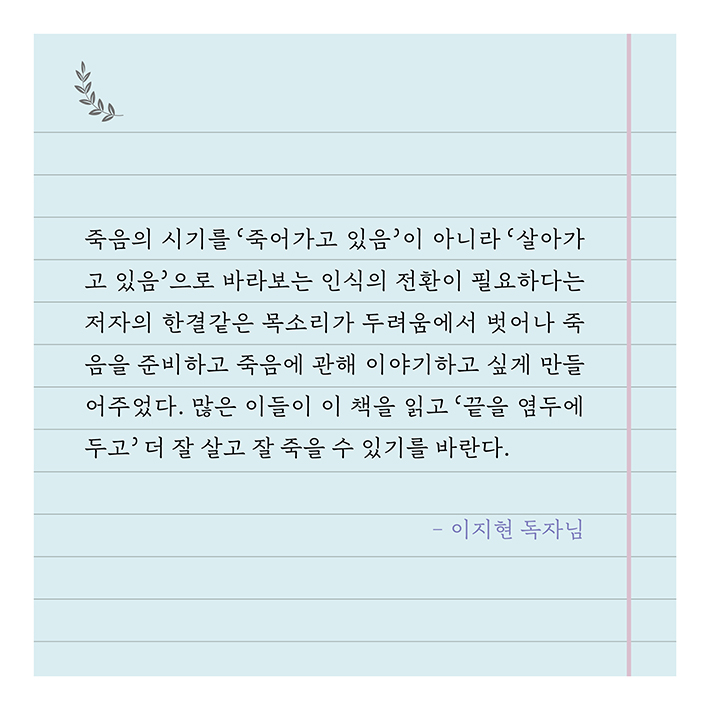 죽음의 시기를 ‘죽어가고 있음’이 아니라 ‘살아가
고 있음’으로 바라보는 인식의 전환이 필요하다는
저자의 한결같은 목소리가 두려움에서 벗어나 죽
음을 준비하고 죽음에 관해 이야기하고 싶게 만들
어주었다. 많은 이들이 이 책을 읽고 ‘끝을 염두에
두고’ 더 잘 살고 잘 죽을 수 있기를 바란다.
– 이지현 독자님